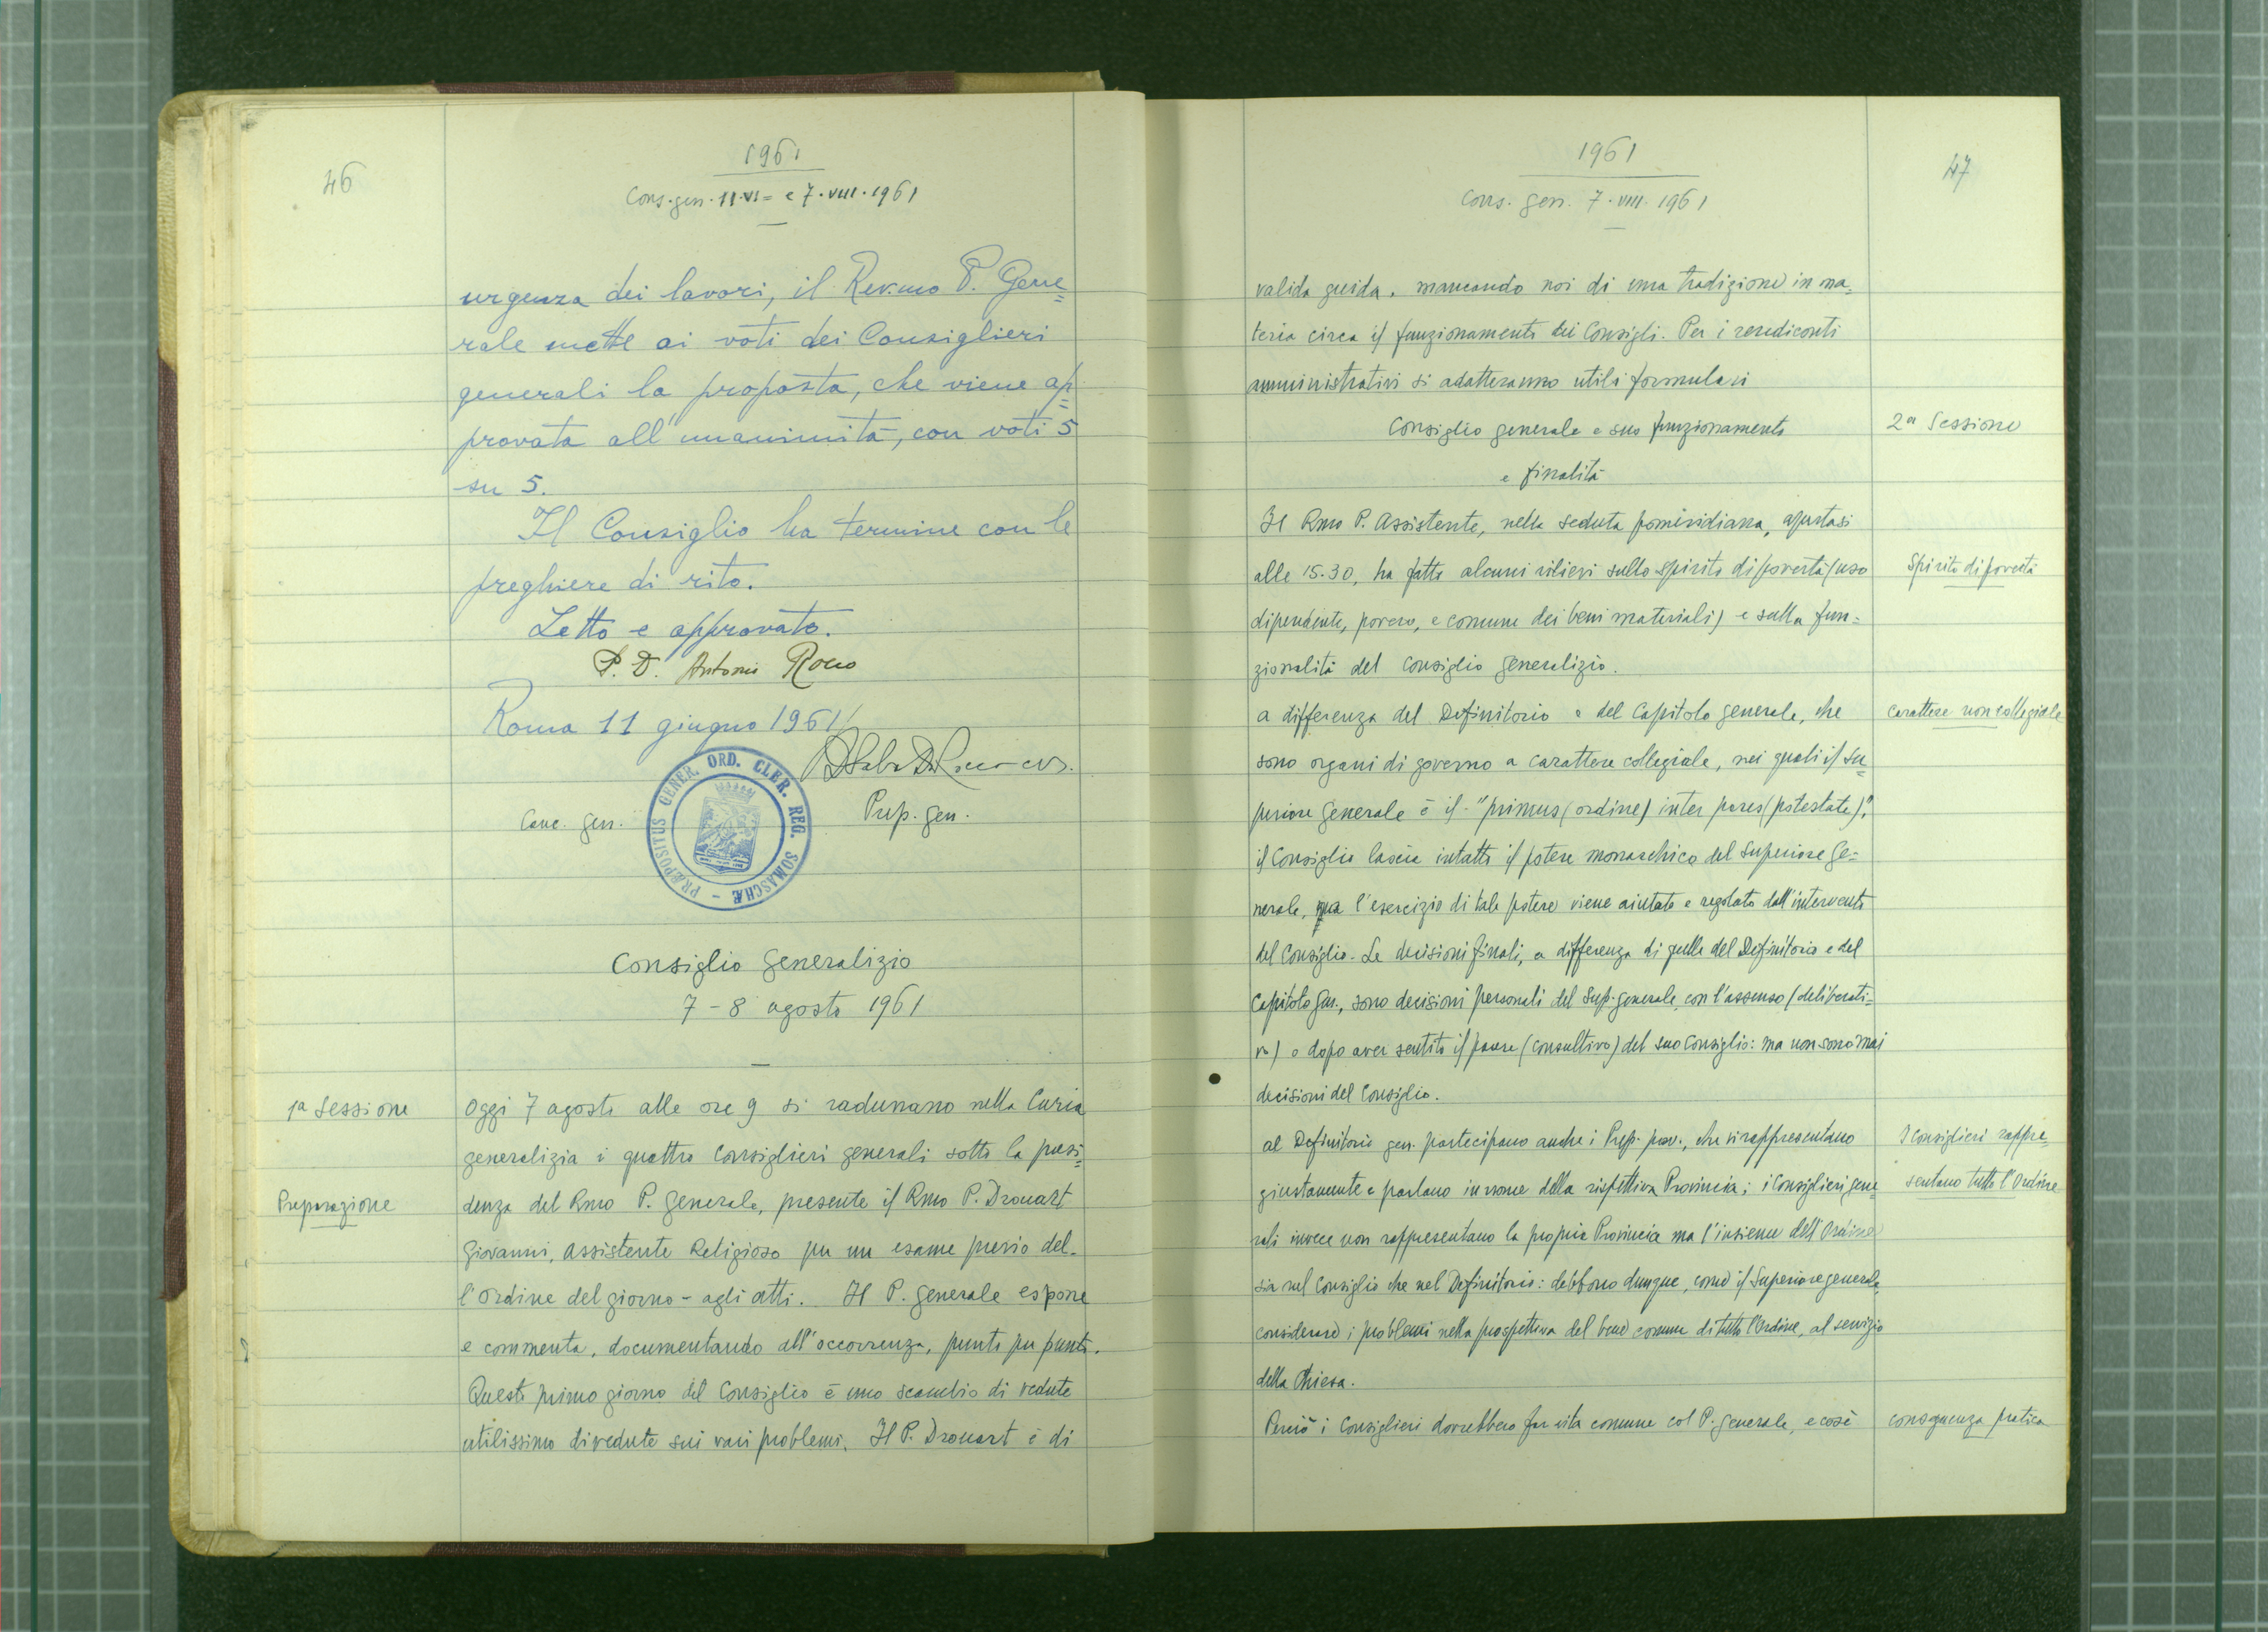 46
1961
Cons. gen. 11·VI= e 7·VIII·1961
urgenza dei lavori, il Rev.mo P. Gene=
rale mette ai voti dei Consiglieri
generali la proposta, che viene ap=
provata all'unanimità, con voti 5
su 5.
Il Consiglio ha termine con le
preghiere di rito.
Letto e approvato.
P. D. Antonio Rocco
Roma 11 giugno 1961
Canc. gen.
PRÆPOSITUS GENER. ORD. CLER. REG. SOMASCHÆ -
Prep. gen.
Consiglio Generalizio
7 - 8 agosto 1961
1ª Sessione
Oggi 7 agosto alle ore 9 si radunano nella Curia
generalizia i quattro Consiglieri generali sotto la presi=
Preparazione
denza del Rmo P. Generale, presente il Rmo P. Drouart
Giovanni, Assistente Religioso per un esame previo del-
l'ordine del giorno - agli atti. Il P. Generale espone
e commenta, documentando all'occorrenza, punto per punto.
Questo primo giorno del Consiglio è uno scambio di vedute
utilissimo di vedute sui vari problemi. Il P. Drouart è di
1961
47
Cons. gen. 7·VIII·1961
valida guida, mancando noi di una tradizione in ma=
teria circa il funzionamento dei Consigli. Per i rendiconti
amministrativi si adatteranno utili formulari
Consiglio generale e suo funzionamento
2ª Sessione
e finalità
Il Rmo P. Assistente, nella seduta pomeridiana, apertasi
alle 15.30, ha fatto alcuni rilievi sullo spirito di povertà (uso
Spirito di povertà
dipendente, povero, e comune dei beni materiali) e sulla fun=
zionalità del Consiglio generalizio.
A differenza del Definitorio e del Capitolo generale, che
carattere non collegiale
sono organi di governo a carattere collegiale, nei quali il Su=
periore Generale è il "primus (ordine) inter pares (potestate)",
il Consiglio lascia intatto il potere monarchico del Superiore Ge=
nerale, ma l'esercizio di tale potere viene aiutato e regolato dall'intervento
del Consiglio. Le decisioni finali, a differenza di quelle del Definitorio e del
Capitolo Gen., sono decisioni personali del Sup. generale, con l'assenso (deliberati=
vo) o dopo aver sentito il parere (consultivo) del suo Consiglio: ma non sono mai
decisioni del Consiglio.
Al Definitorio gen. partecipano anche i Prep. prov., che vi rappresentano
I Consiglieri rappre=
giustamente e parlano in nome della rispettiva Provincia; i Consiglieri gene=
sentano tutto l'Ordine
rali invece non rappresentano la propria Provincia ma l'insieme dell'Ordine
sia nel Consiglio che nel Definitorio: debbono dunque, come il Superiore generale,
considerare i problemi nella prospettiva del bene comune di tutto l'Ordine, al servizio
della Chiesa.
Perciò i Consiglieri dovrebbero far vita comune col P. Generale, e così
conseguenza pratica